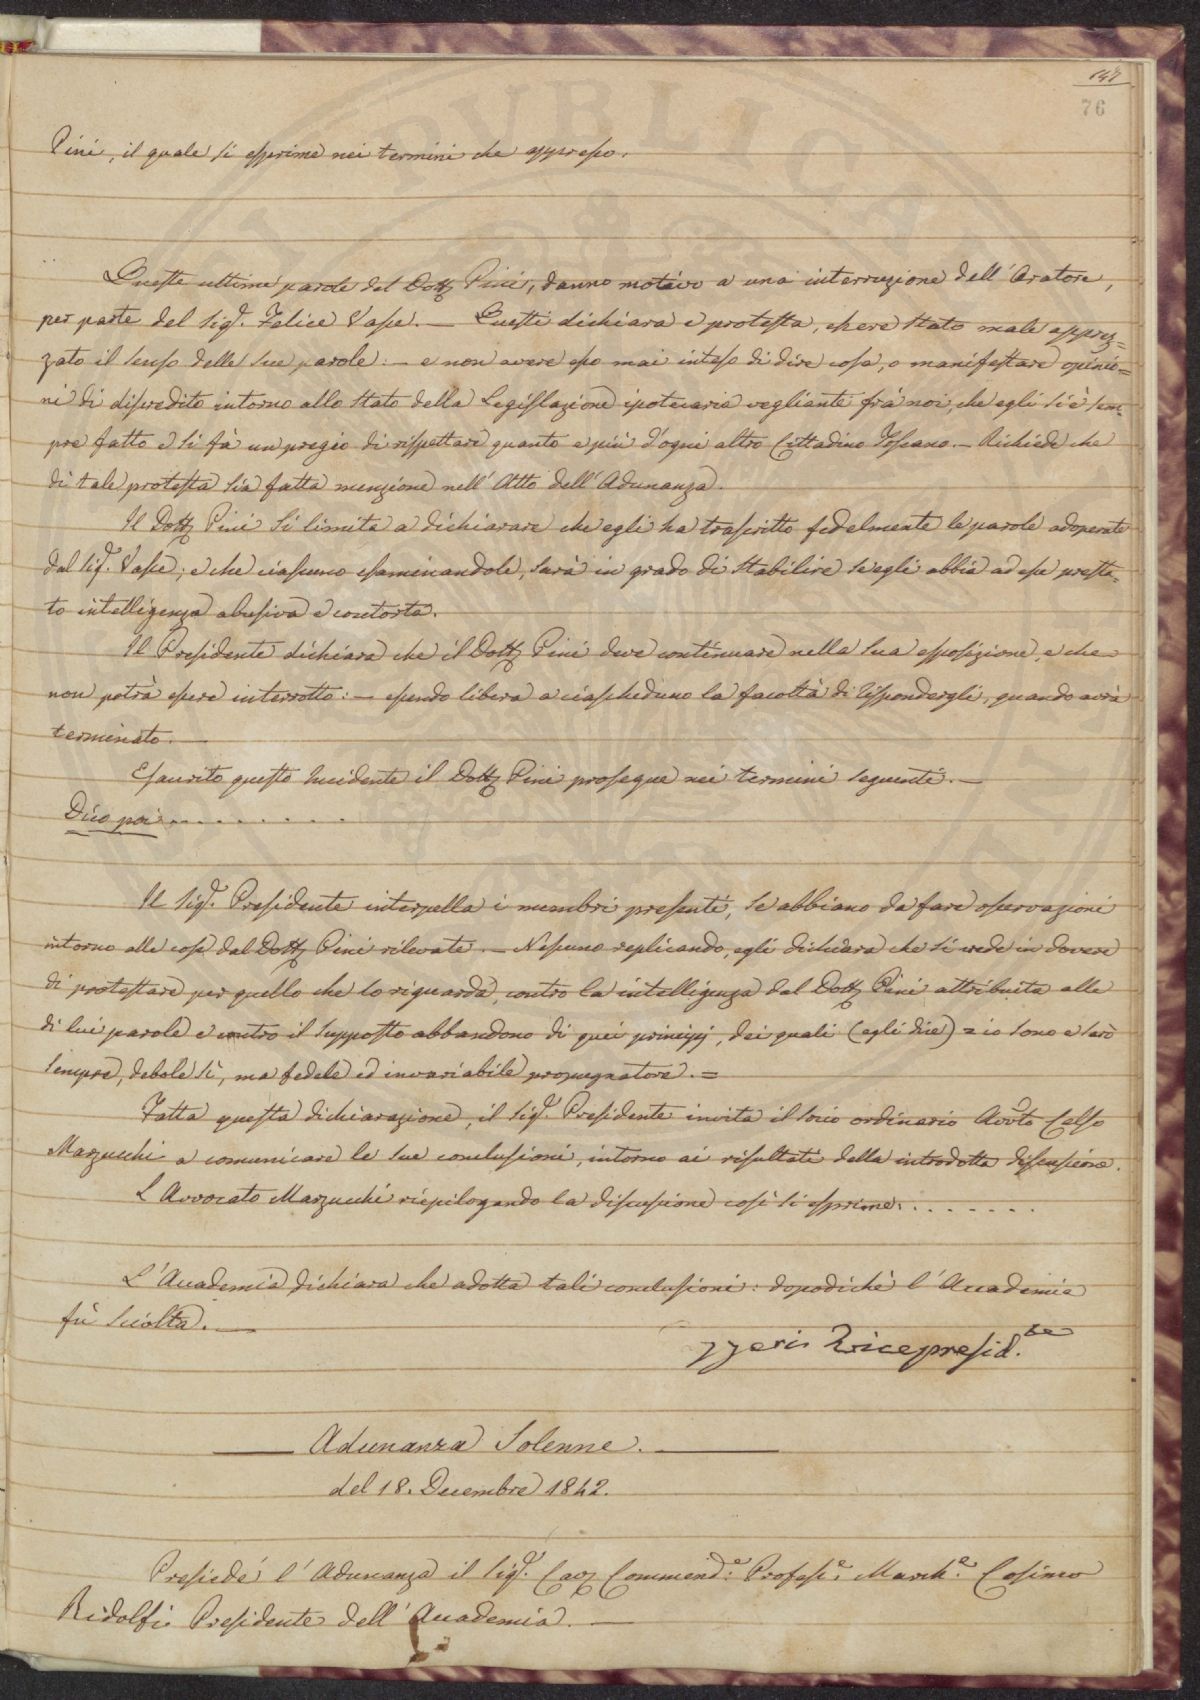 147
76
Pini, il quale si esprime nei termini che appresso.
Queste ultime parole del Dott. Pini, danno motivo a una interruzione dell'Oratore,
per parte del Sig.r Felice Vasse. — Questi dichiara e protesta, essere stato male apprez=
zato il senso delle sue parole: — e non avere esso mai inteso di dire cosa, o manifestare opinio=
ni di discredito intorno allo stato della Legislazione ipotecaria vegliante frà noi, che egli si è sem=
pre fatto e si fà un pregio di rispettare quanto e più d'ogni altro Cittadino Toscano. — Richiede che
di tale protesta sia fatta menzione nell'Atto dell'Adunanza.
Il Dott. Pini si limita a dichiarare che egli ha trascritto fedelmente le parole adoperate
dal Sig.r Vasse; e che ciascuno esaminandole, sarà in grado di stabilire se egli abbia ad esse presta=
to intelligenza abusiva e contorta.
Il Presidente dichiara che il Dott. Pini deve continuare nella sua esposizione, e che
non potrà essere interrotto: — essendo libera a ciascheduno la facoltà di rispondergli, quando avrà
terminato. —
Esaurito questo Incidente il Dott. Pini prosegue nei termini seguenti. —
Dico poi . . . . . . . . .
Il Sig.r Presidente interpella i membri presenti, se abbiano da fare osservazioni
intorno alle cose dal Dott. Pini rilevate. — Nessuno replicando, egli dichiara che si crede in dovere
di protestare per quello che lo riguarda, contro la intelligenza dal Dott. Pini attribuita alle
di lui parole e contro il supposto abbandono di quei principj, dei quali (egli dice) = io sono e sarò
sempre, debole sì, ma fedele ed invariabile propugnatore. =
Fatta questa dichiarazione, il Sig.r Presidente invita il Socio ordinario Avv.to Celso
Marzucchi a comunicare le sue conclusioni, intorno ai risultati della introdotta discussione.
L'Avvocato Marzucchi riepilogando la discussione così si esprime. . . . . . . .
L'Accademia dichiara che adotta tali conclusioni: dopodichè l'Accademia
fù sciolta. —
Vicepresid.te
— Adunanza Solenne. —
del 18. Decembre 1842.
Presiedé l'Adunanza il Sig.r Cav. Commend.e Profess.e March.e Cosimo
Ridolfi Presidente dell'Accademia. —